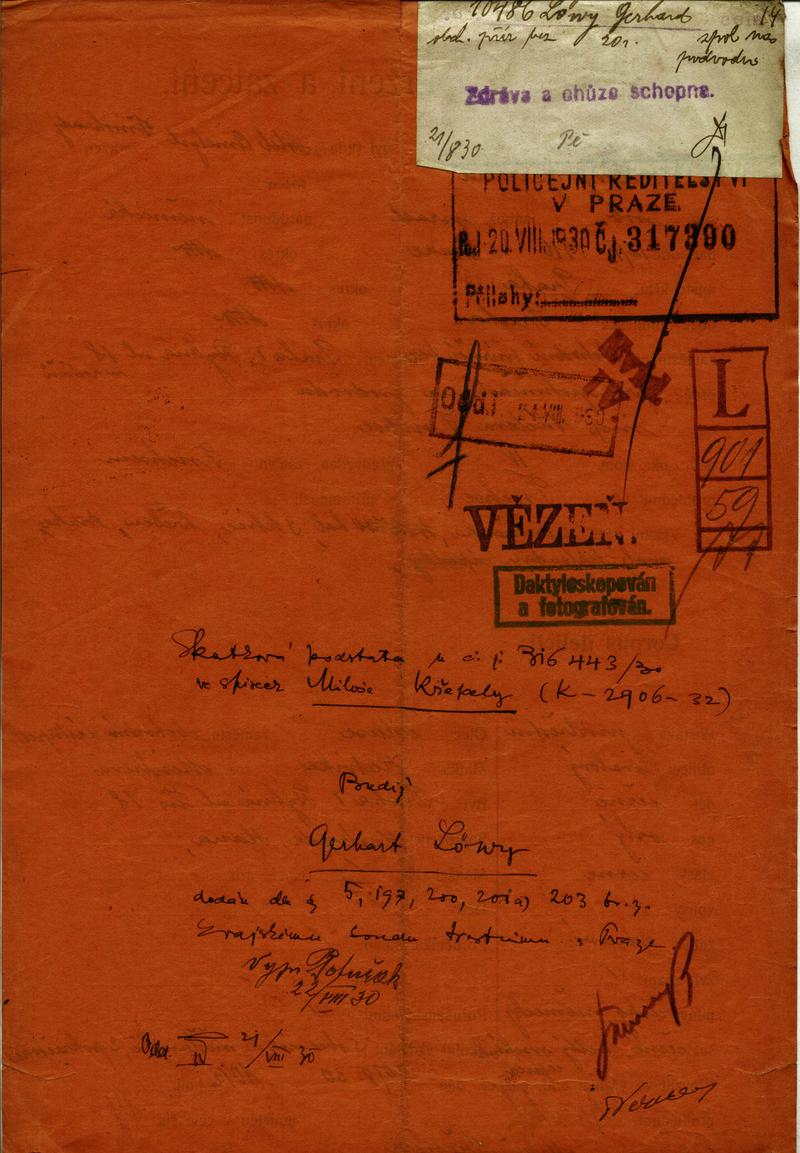 10486 Löwy Gerhard 14
obch. přír bez 20r. spol na
podvodu
Zdráva a chůze schopna.
21/8 30 Pě
POLICEJNÍ ŘEDITELSTVÍ
V PRAZE
20. VIII. 1930 Čj. 317390
Přílohy:
Odd. I 21 VIII. 1930
L
901
59
VĚZEŇ.
Daktyloskopován
a fotografován.
Skutková podstata u č. j. 3i6 443/30
ve spisech Miloše Křepely (K-2906-32)
Budiž
Gerhart Löwy
dodán dle § 5, 197, 200, 201a) 203 tr. z.
krajskému soudu trestnímu v Praze
22/VIII 30
Odd. IV 21/VIII 30